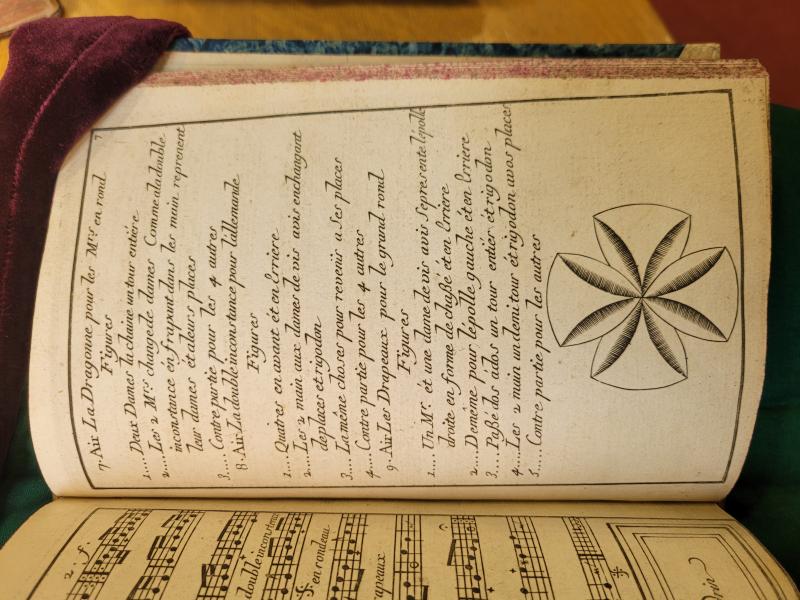 7
7. Air La Dragonne pour les Mrs en rond
Figures
1.... Deux Dames la chaine un tour entiére
2.... Les 2 Mrs change de dames Comme a la double
inconstance en frapant dans les main reprenent
leur dames et a leurs places
3.... Contre partie pour les 4 autres
8. Air La double inconstance pour l'allemande
Figures
1.... Quatres en avant ét en Erriere
2.... Les 2 main aux dames de vis avis en changant
de places et rigodon
3.... La même choses pour revenir a Ses places
4.... Contre partie pour les 4 autres
9. Air Les Drapeaux pour le grand rond
Figures
1.... Un Mr. ét une dame de vis avis Se presente lepolle
droite en forme de chaßé ét en Erriere
2.... De même pour lépolle gauche ét en Erriere
3.... Paßé dos ados un tour entier ét rigodon
4.... Les 2 main un demi tour ét rigodon a vos places
5.... Contre partie pour les autres
2. f.
double inconstance
en rondeau
rapeaux